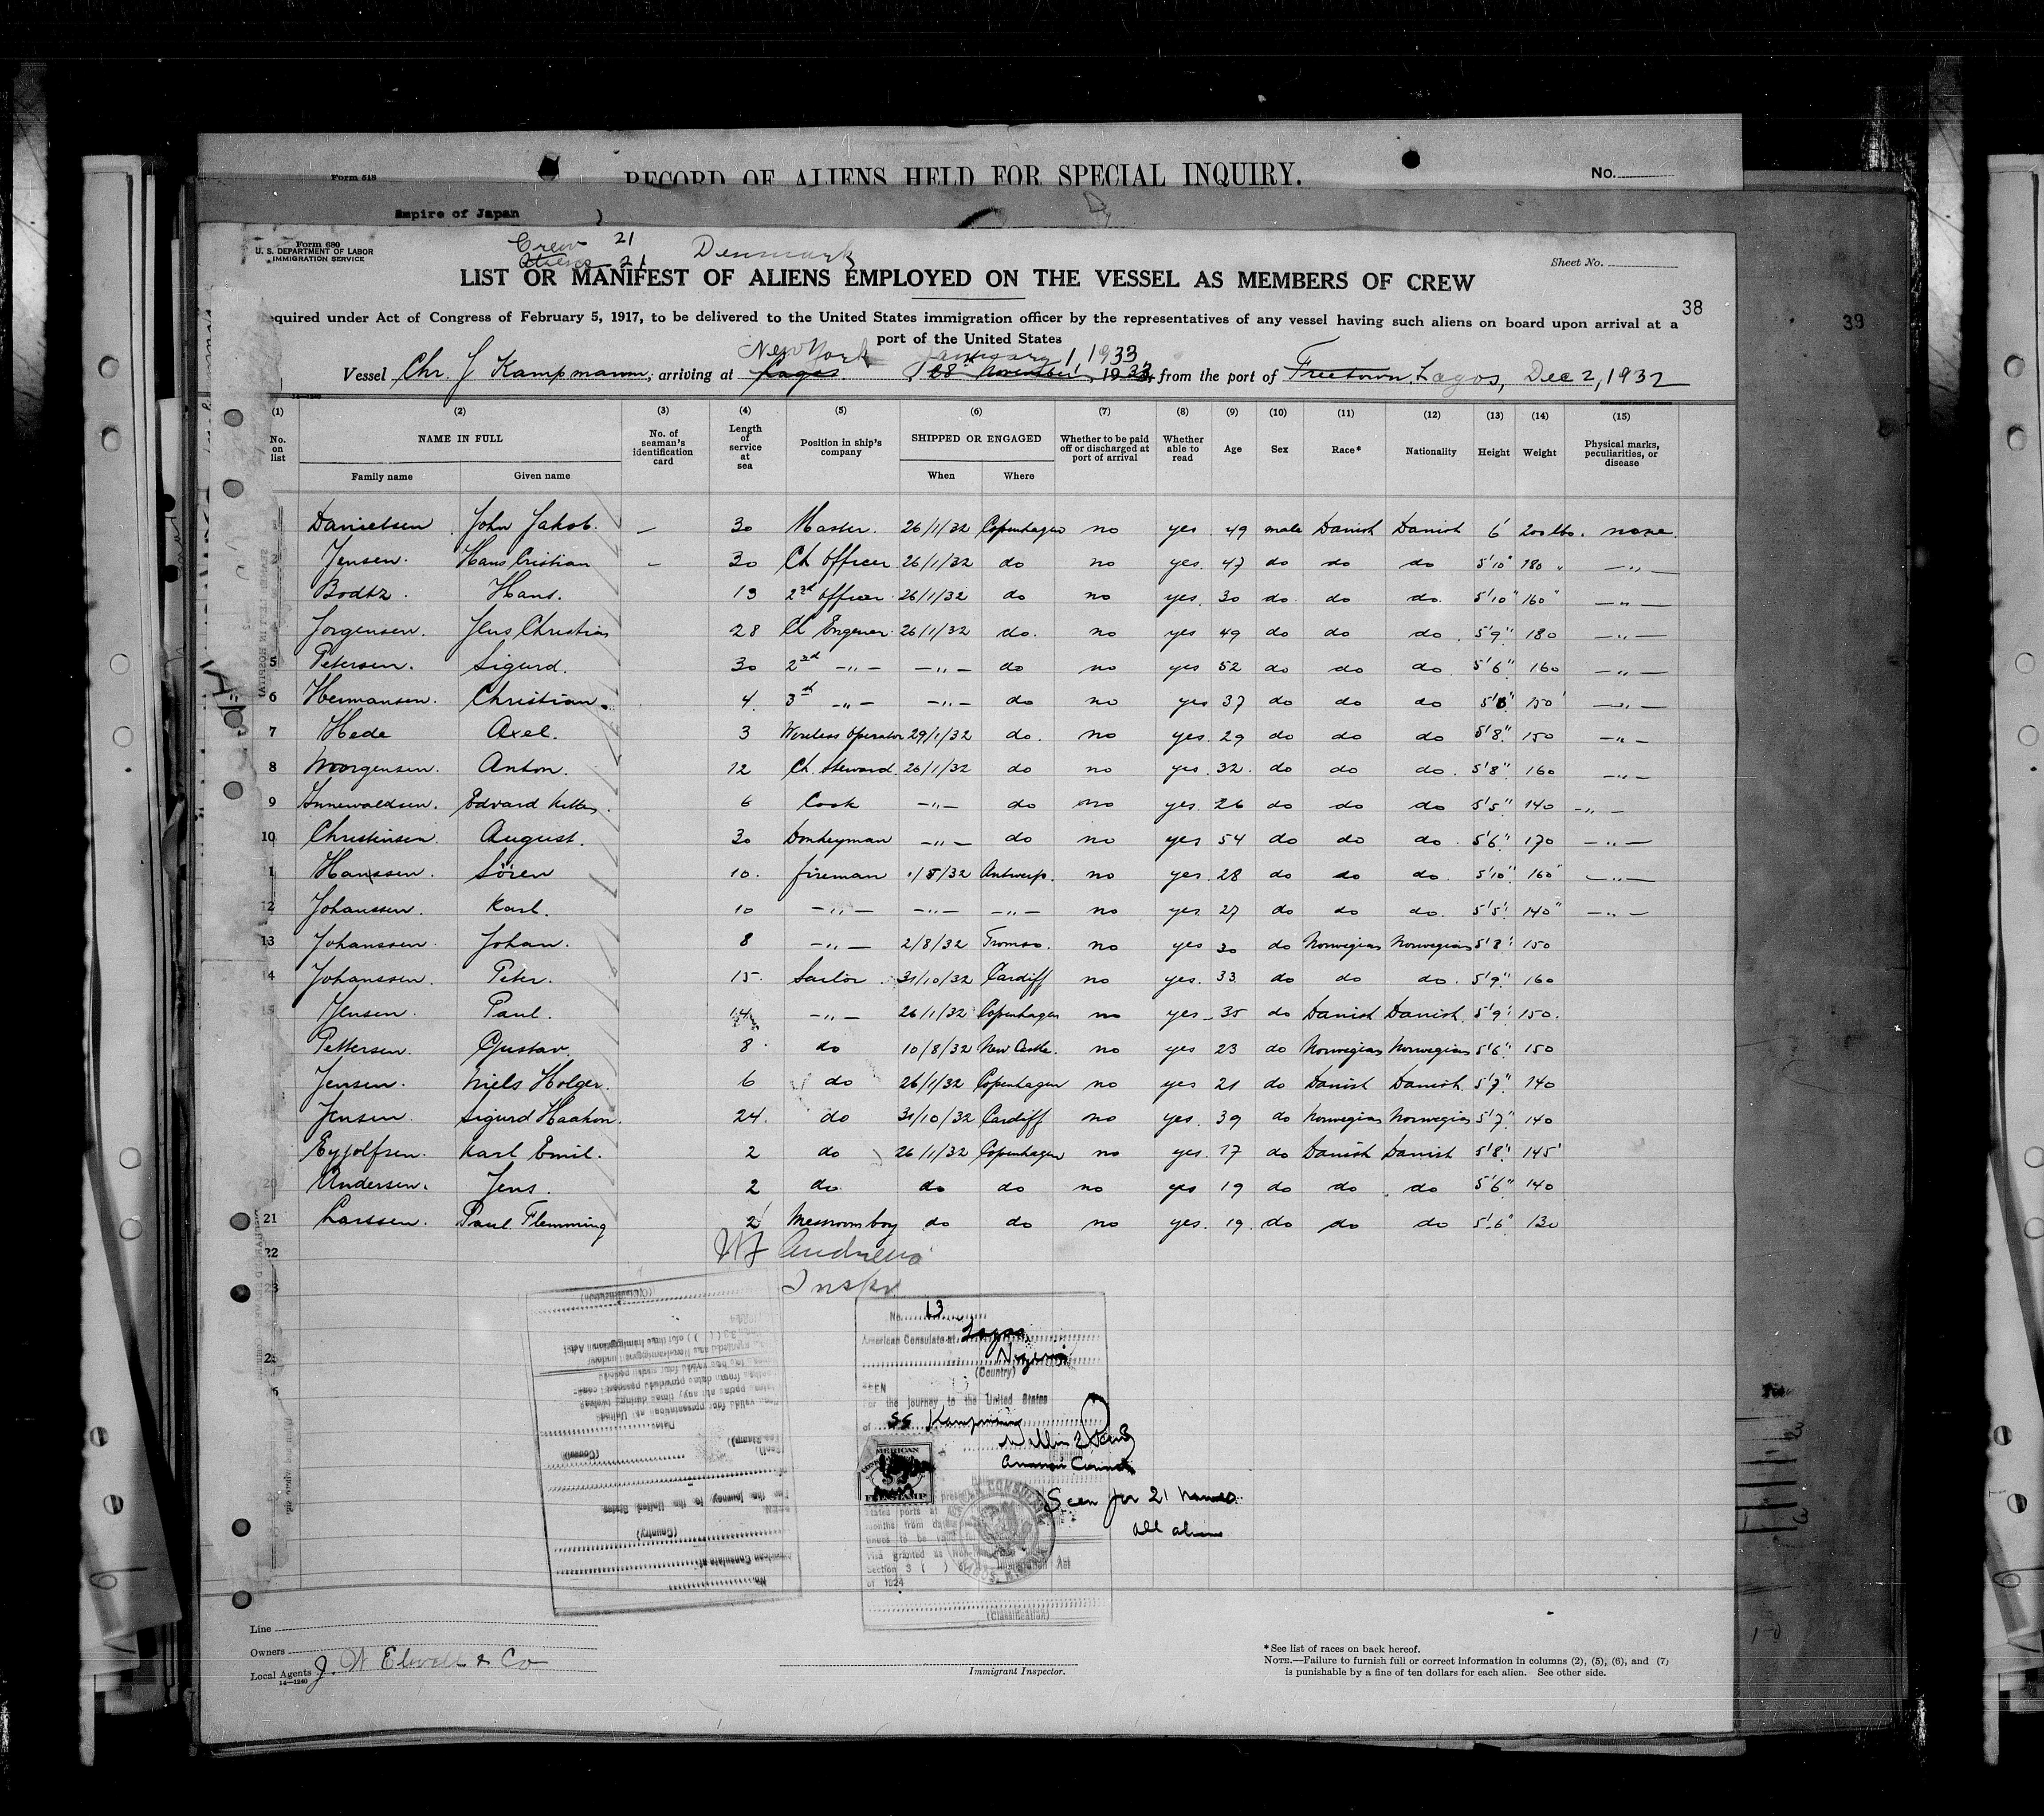 Form 518
RECORD OF ALIENS HELD FOR SPECIAL INQUIRY.
No.
Empire of Japan )
Form 680
U. S. DEPARTMENT OF LABOR
IMMIGRATION SERVICE
Crew 21
Aliens 21
Denmark
Sheet No.
LIST OR MANIFEST OF ALIENS EMPLOYED ON THE VESSEL AS MEMBERS OF CREW
38
39
equired under Act of Congress of February 5, 1917, to be delivered to the United States immigration officer by the representatives of any vessel having such aliens on board upon arrival at a
port of the United States
New York January 1, 1933
Vessel Chr. J Kampmann, arriving at Lagos. 28th November, 1933, from the port of Freetown. Lagos, Dec 2, 1932
14-1240
(1) (2) (3) (4) (5) (6) (7) (8) (9) (10) (11) (12) (13) (14) (15)
No. on list NAME IN FULL Family name Given name No. of seaman's identification card Length of service at sea Position in ship's company SHIPPED OR ENGAGED When Where Whether to be paid off or discharged at port of arrival Whether able to read Age Sex Race* Nationality Height Weight Physical marks, peculiarities, or disease
1 Danielsen John Jakob. — 30 Master. 26/1/32 Copenhagen no yes 49 male Danish Danish 6' 200 lbs. none.
2 Jensen. Hans Cristian — 30 Ch officer 26/1/32 do no yes. 47 do do do 5'10" 180 " —"—
Bodtz. Hans. 19 2nd officer 26/1/32 do no yes. 30 do do do. 5'10" 160" —"—
Jorgensen. Jens Christian 28 Ch Engener 26/1/32 do. no yes 49 do do do. 5'9" 180 —"—
5 Petersen. Sigurd. 30 2nd —"— —"— do no yes 52 do do do. 5'6" 160 —"—
6 Hermansen. Christian. 4. 3rd —"— —"— do no yes 37 do do do 150 —"—
7 Hede Axel. 3 Wireless Operator 29/1/32 do. no yes. 29 do do do 5'8" 150 —"—
8 Morgensen. Anton. 12 Ch. Steward 26/1/32 do no yes. 32. do do do. 5'8" 160 —"—
9 Annewaldsen. Edvard 6 Cook —"— do no yes. 26 do do do 5'5" 140 —"—
10 Christensen. August. 30 Donkeyman —"— do no yes 54 do do do. 5'6" 170 —"—
11 Hanssen. Sören 10. fireman 1/8/32 Antwerp. no yes. 28 do do do. 5'10" 160" —"—
12 Johanssen. Karl. 10 —"— —"— —"— no yes 27 do do do. 5'5" 140" —"—
13 Johanssen. Johan. 8 —"— 2/8/32 Tromso. no yes 30 do Norwegian Norwegian 5'8" 150
14 Johanssen. Peter. 15. Sailor. 31/10/32 Cardiff no yes. 33 do do do. 5'9" 160
15 Jensen. Paul. 14 —"— 26/1/32 Copenhagen no yes 35 do Danish Danish. 5'9" 150.
Pettersen. Gustav. 8. do 10/8/32 New Castle. no yes 23 do Norwegian Norwegian 5'6" 150
Jensen. Niels Holger. 6 do 26/1/32 Copenhagen no yes 21 do Danish Danish. 5'7" 140
Jensen. Sigurd Haakon. 24. do 31/10/32 Cardiff no yes. 39 do Norwegian Norwegian 5'7" 140
Eyjolfsen. Karl Emil. 2 do 26/1/32 Copenhagen no yes. 17 do Danish Danish 5'8" 145
20 Andersen. Jens. 2 do. do do no yes 19 do do do 5'6" 140
21 Larssen. Paul Flemming 2 Messroom boy do do no yes. 19. do do do 5'6" 130
22 Andrews
23 Inspr
No. 13
American Consulate at Lagos
Nigeria
(Country)
SEEN
For the journey to the United States
of SS Kampmann
American Consul
AMERICAN
FEE STAMP
Seen for 21 names
all aliens
States ports at
months from da
Visa granted as Non-
Section 3 ( ) of Immigration Act
of 1924
(Classification)
No.
American Consulate at
(Country)
SEEN
For the journey to the United States
(Consul)
(Classification)
Line
Owners
Local Agents J. W Elwell & Co
14-1240
Immigrant Inspector.
*See list of races on back hereof.
NOTE.—Failure to furnish full or correct information in columns (2), (5), (6), and (7)
is punishable by a fine of ten dollars for each alien. See other side.